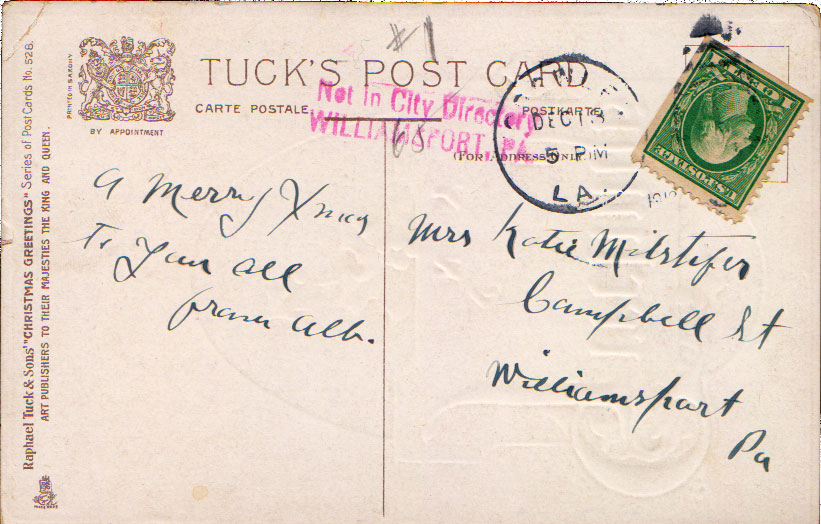 #1
TUCK'S POST CARD
CARTE POSTALE
POSTKARTE
(FOR ADDRESS ONLY.)
BY APPOINTMENT
PRINTED IN SAXONY
Raphael Tuck & Sons' "CHRISTMAS GREETINGS" Series of PostCards No. 528.
ART PUBLISHERS TO THEIR MAJESTIES THE KING AND QUEEN.
Not in City Directory
WILLIAMSPORT, PA.
DEC 13
5 PM
LA.
U.S. POSTAGE
A Merry Xmas
To you all
from Alb.
Mrs Katie Milstifer
Campbell St
Williamsport
Pa